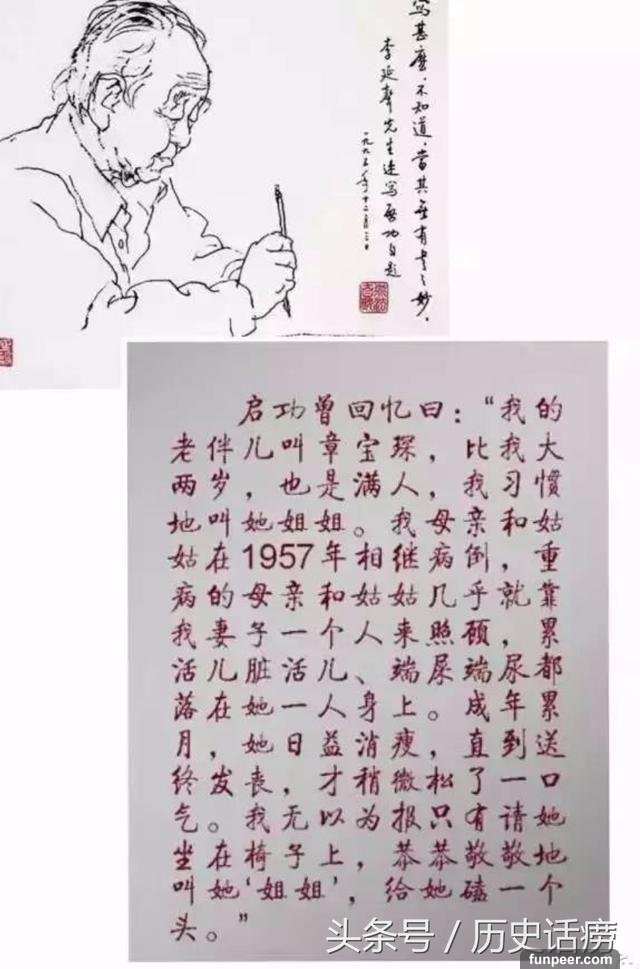 写甚麼,不知道,當其無有書之妙.
李延聲先生速写启功自题
启功曾回忆曰:“我的
老伴儿叫章宝琛,比我大
两岁,也是满人,我习惯
地叫她姐姐。我母亲和姑
姑在1957年相继病倒,重
病的母亲和姑姑几乎就,靠
我妻子一个人来照顾,累
活儿脏活儿、端屎端尿都
落在她一人身上。成年累
月,她日益消瘦,直到送
终发丧,才稍微松了一口
气。我无以为报只有请她
坐在椅子上,恭恭敬敬地
叫她‘姐姐’,给她磕一个
头。”
头条号/历史话痨
funpeer.com